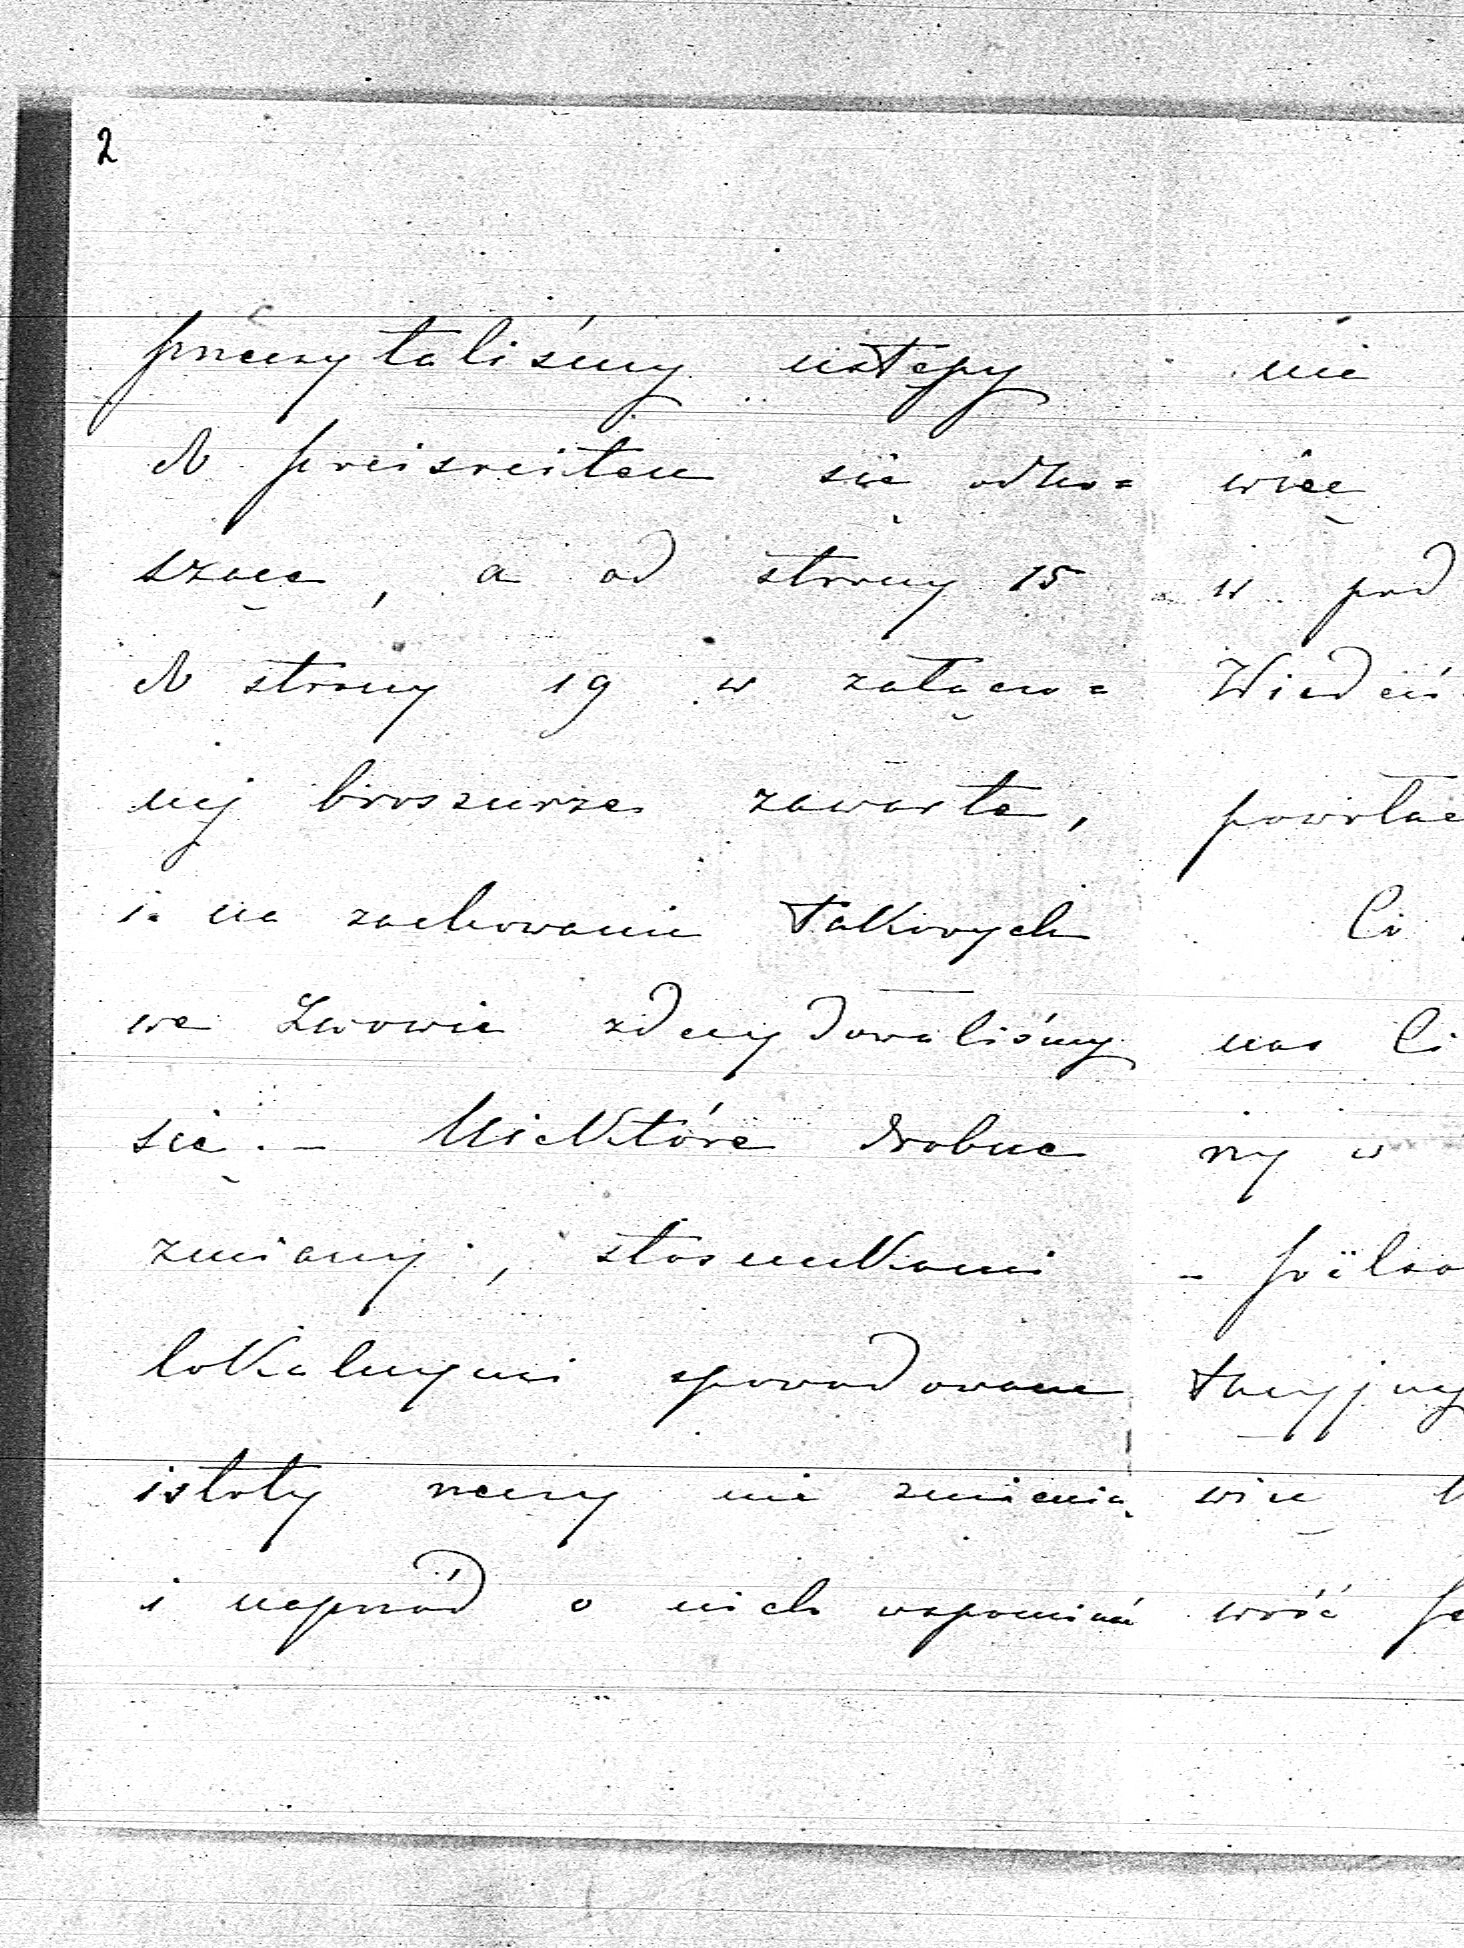 2
przeczytaliśmy ustępy
do preisrichterów się odno=
szące, a od strony 15
do strony 19 w załączo=
nej broszurze zawarte,
i na zachowanie takowych
we Lwowie zdecydowaliśmy
się. – Niektóre drobne
zmiany, stosunkami
lokalnymi spowodowane
istoty rzeczy nie zmienią
i naprzód o nich wspominać
nie
więc
w pod
Wiedeń
powołać
Co
nas Ci
ny w
wość